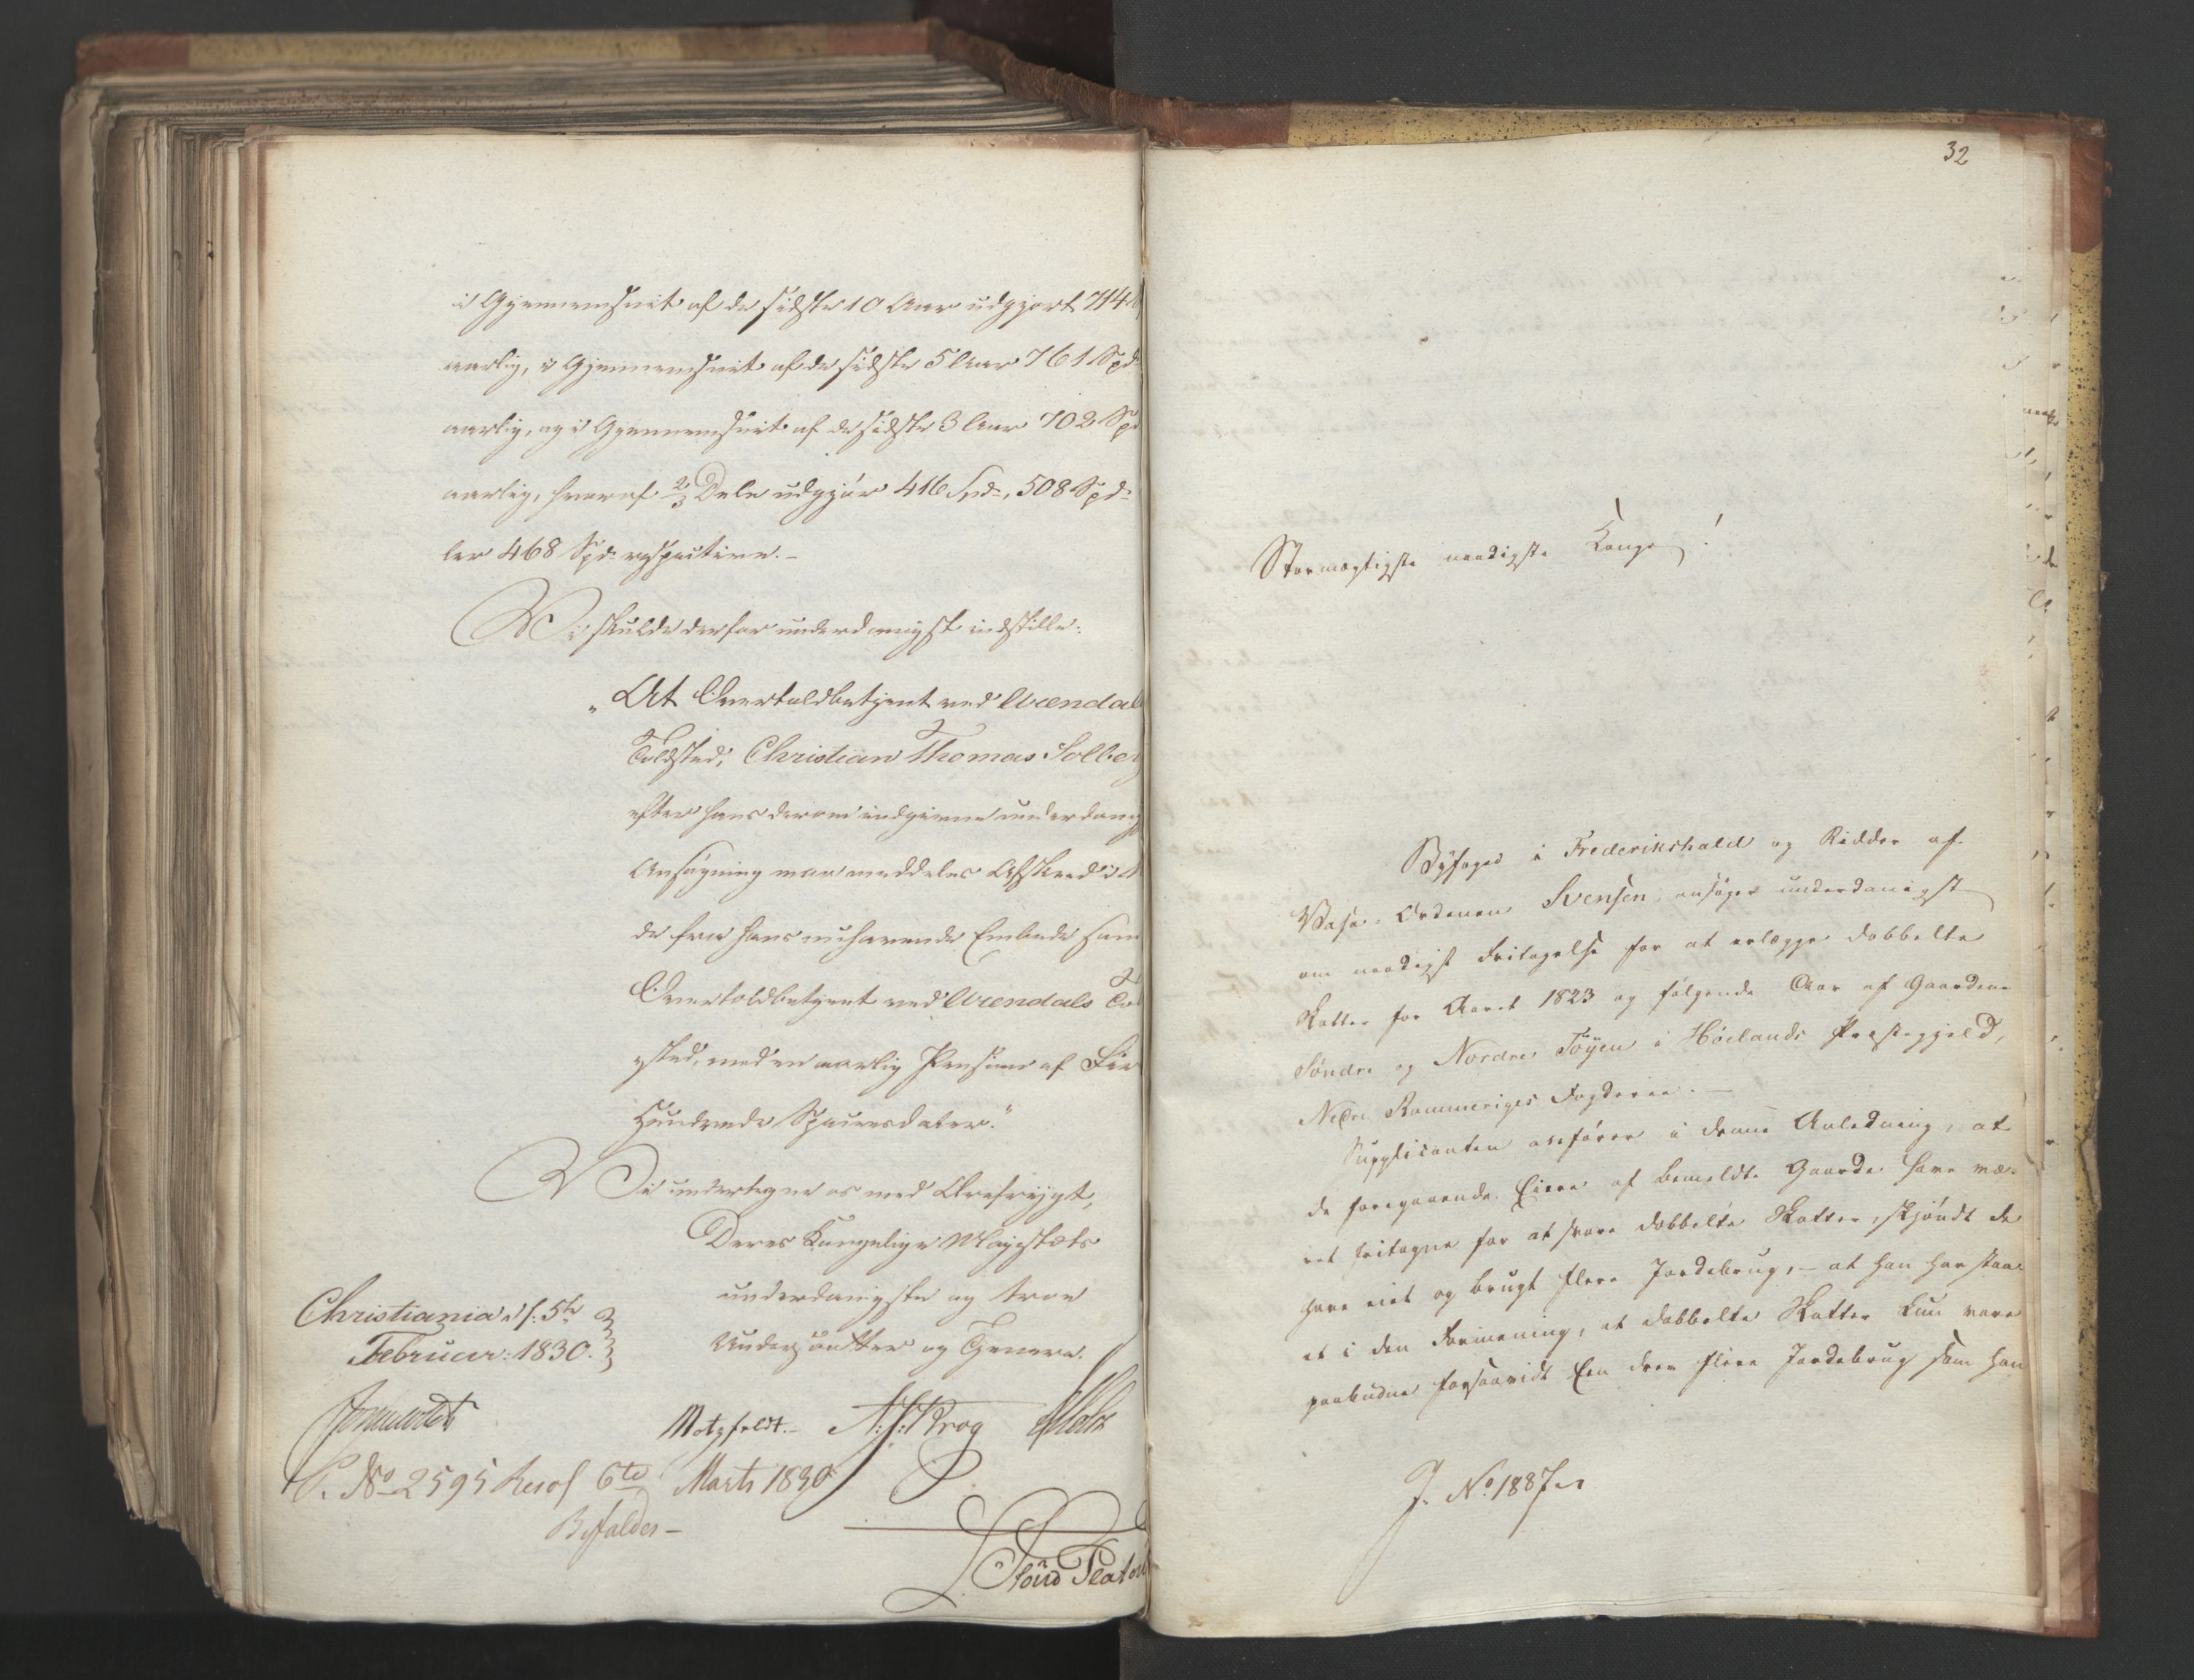 i Gjennemsnit af de sidste 10 Aar udgjort 714
aarlig, i Gjennemsnit af de sidste 5 Aar 761 Spd:
aarlig, og i Gjennemsnit af de sidste 3 Aar 702 Spd
aarlig, hvoraf 2/3 Dele udgjør 416 Spd:, 508 Spd:
ler 468 Spd: respective.-
Vi skulde derfor underdanigst indstille:
„At Overtoldbetjent ved Arendal
Toldsted, Christian Thomas Solberg
efter hans derom indgivne underdanig
Ansøgning maa meddeles Afsked i
de fra hans nuhavende Embede som
Overtoldbetjent ved Arendals Tol
sted, med en aarlig Pension af Fire
Hundrede Speciesdaler."
Vi undertegne os med Ærefrygt,
Deres Kongelige Majestæts
underdanigste og troe
Undersaatter og Tjenere.
Christiania d: 5te
Februar: 1830.
Motzfeldt.- A: J: Krog Holst
P. No 2595 Resol 6te Marts 1830
Bifaldes –
32
Stormægtigste naadigste Konge!
Byfoged i Frederikshald og Ridder af
Vasa-Ordenen Svensen, ansøger underdanigst
om naadigst Fritagelse for at erlægge dobbelte
Skatter for Aaret 1823 og følgende Aar af Gaardene
Søndre og Nordre Töyen i Höelands Præstegjeld,
Nedre Rommeriges Fogderie.—
Supplicanten anfører i denne Anledning, at
de foregaaende Eiere af bemeldte Gaarde have væ-
ret fritagne for at svare dobbelte Skatter, skjøndt de
have eiet og brugt flere Jordebrug, – at han har staa-
et i den Formening, at dobbelte Skatter kun vare
paabudne forsaavidt Een drev flere Jordebrug som han
J. No 1887